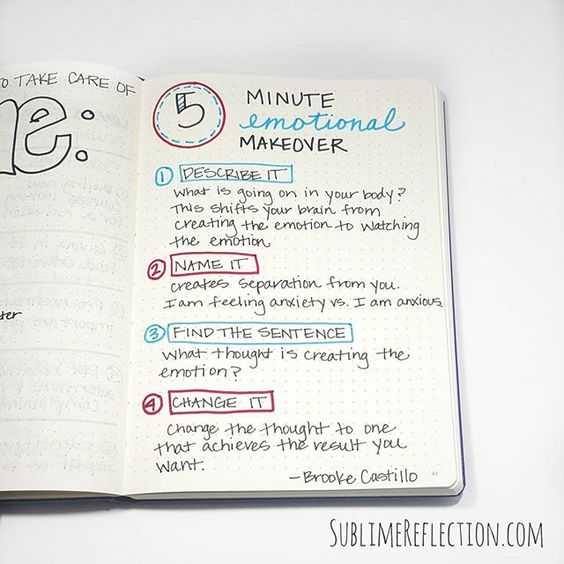 O TAKE CARE OF
me:
ter
5 MINUTE
emotional
MAKEOVER
1 DESCRIBE IT
What is going on in your body?
This shifts your brain from
creating the emotion to watching
the emotion
2 NAME IT
creates separation from you.
I am feeling anxiety vs. I am anxious
3 FIND THE SENTENCE
What thought is creating the
emotion?
4 CHANGE IT
Change the thought to one
that achieves the result you
want.
—Brooke Castillo
SUBLIMEREFLECTION.COM